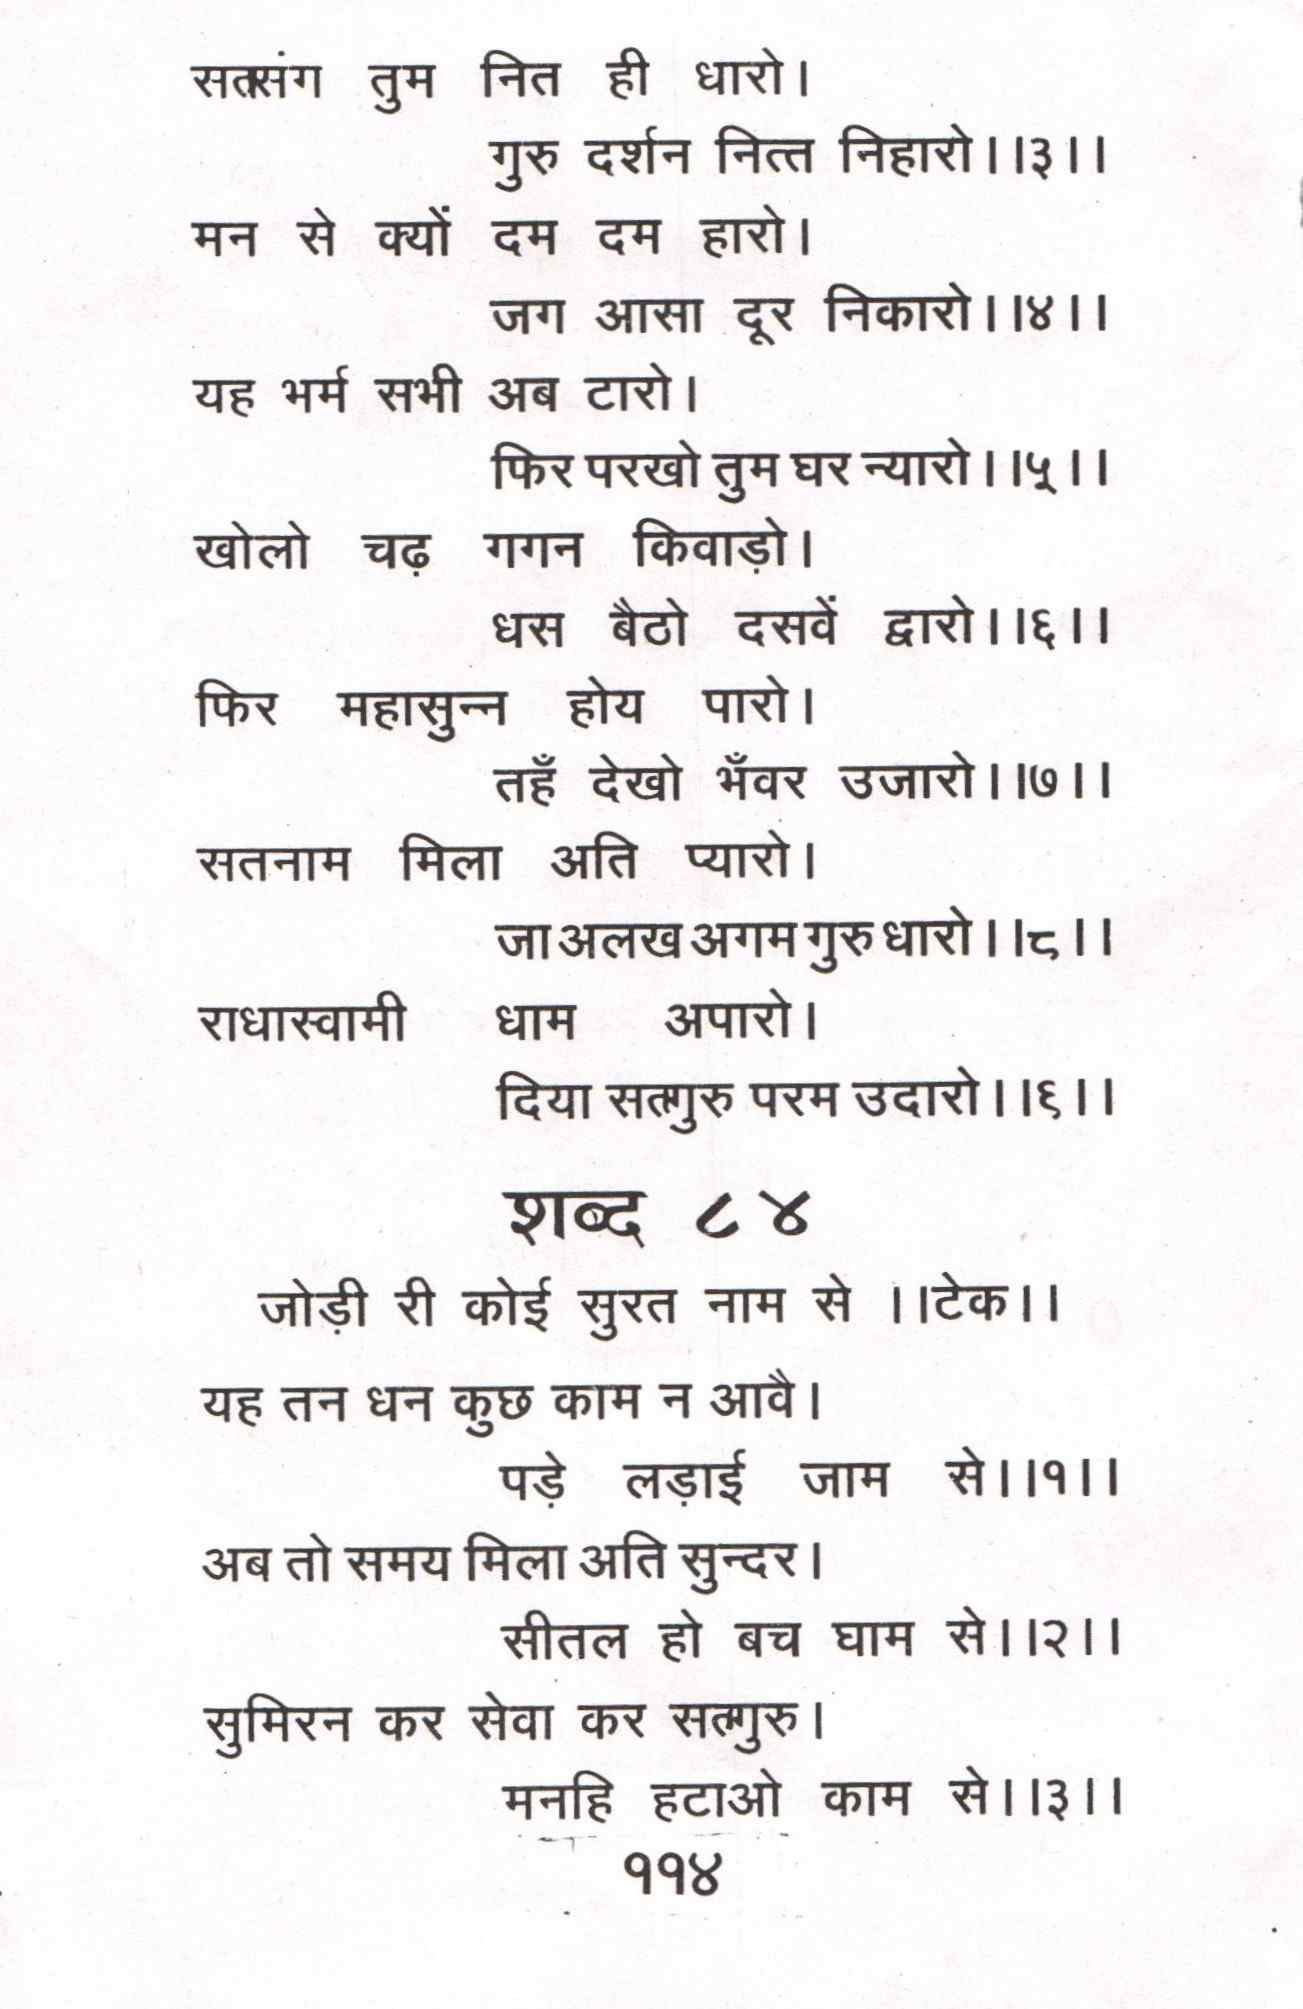 सतसंग तुम नित ही धारो।
गुरु दर्शन नित्त निहारो।।३।।
मन से क्यों दम दम हारो।
जग आसा दूर निकारो।।४।।
यह भर्म सभी अब टारो।
फिर परखो तुम घर न्यारो।।५।।
खोलो चढ़ गगन किवाड़ो।
धस बैठो दसवें द्वारो।।६।।
फिर महासुन्न होय पारो।
तहँ देखो भँवर उजारो।।७।।
सतनाम मिला अति प्यारो।
जा अलख अगम गुरु धारो।।८।।
राधास्वामी धाम अपारो।
दिया सतगुरु परम उदारो।।९।।
शब्द ८४
जोड़ी री कोई सुरत नाम से ।।टेक।।
यह तन धन कुछ काम न आवै।
पड़े लड़ाई जाम से।।१।।
अब तो समय मिला अति सुन्दर।
सीतल हो बच घाम से।।२।।
सुमिरन कर सेवा कर सतगुरु।
मनहि हटाओ काम से।।३।।
११४